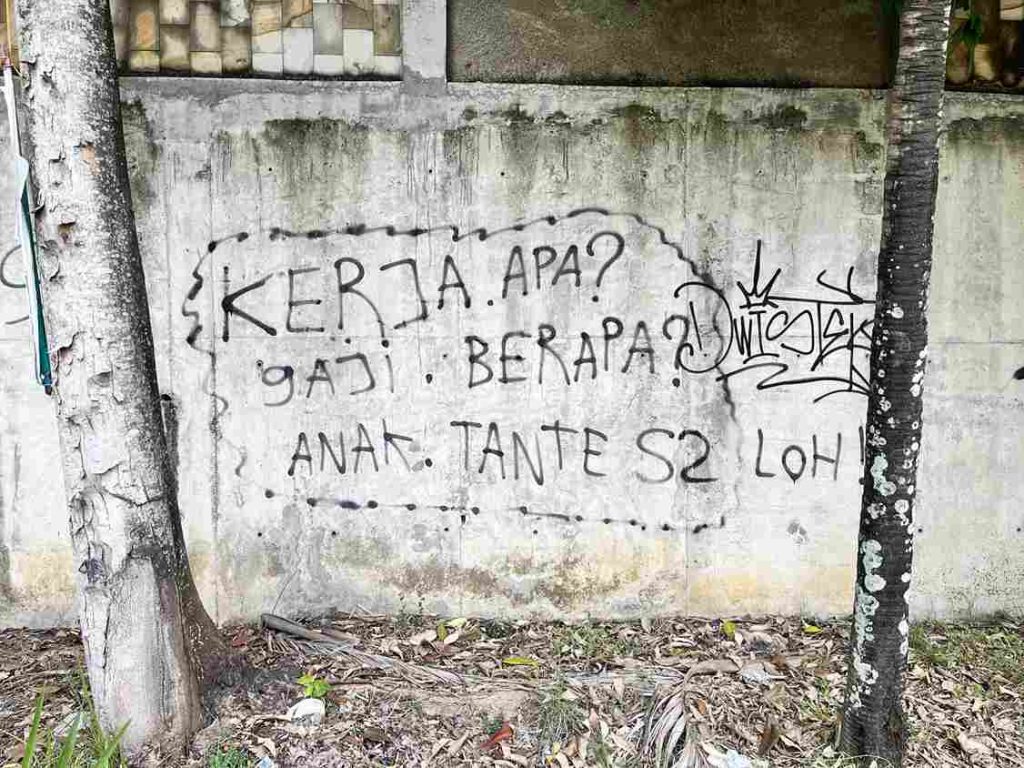 KERJA. APA?
gAJi. BERAPA?
ANAK. TANTE S2 LOH!